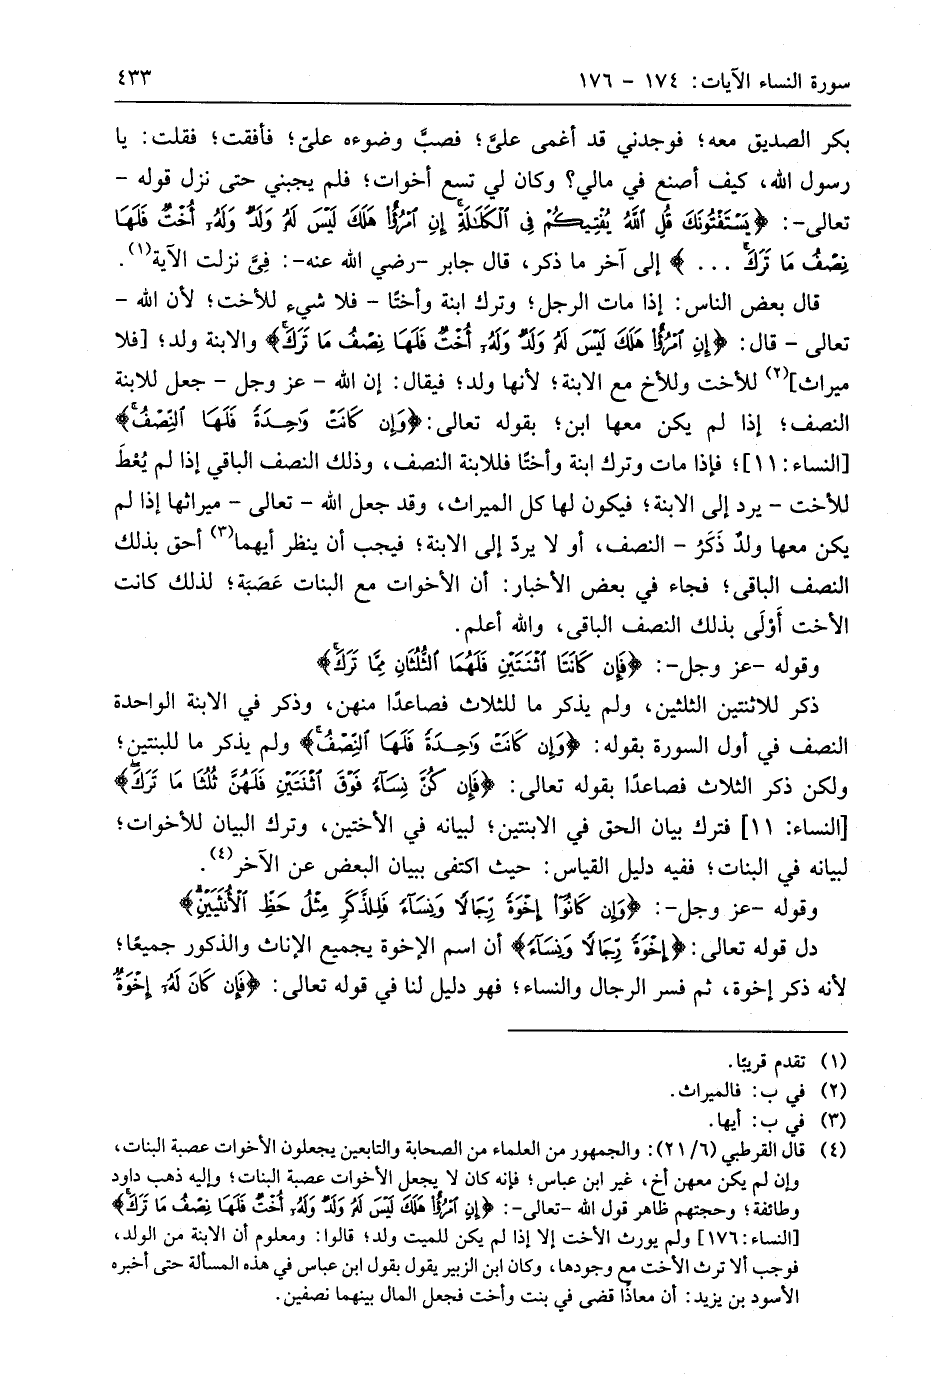 سورة النساء الآيات: ١٧٤ - ١٧٦
٤٣٣
بكر الصديق معه؛ فوجدني قد أغمى علىَّ؛ فصبَّ وضوءه علىّ؛ فأفقت؛ فقلت: يا
رسول الله، كيف أصنع في مالي؟ وكان لي تسع أخوات؛ فلم يجبني حتى نزل قوله -
تعالى-: ﴿يَسْتَفْتُونَكَ قُلِ ٱللَّهُ يُفْتِيكُمْ فِى ٱلْكَلَٰلَةِۚ إِنِ ٱمْرُؤٌا۟ هَلَكَ لَيْسَ لَهُۥ وَلَدٌ وَلَهُۥٓ أُخْتٌ فَلَهَا
نِصْفُ مَا تَرَكَۚ ... ﴾ إلى آخر ما ذكر، قال جابر -رضي الله عنه-: فِىَّ نزلت الآية(١).
قال بعض الناس: إذا مات الرجل؛ وترك ابنة وأختًا - فلا شيء للأخت؛ لأن الله -
تعالى - قال: ﴿إِنِ ٱمْرُؤٌا۟ هَلَكَ لَيْسَ لَهُۥ وَلَدٌ وَلَهُۥٓ أُخْتٌ فَلَهَا نِصْفُ مَا تَرَكَۚ﴾ والابنة ولد؛ [فلا
ميراث](٢) للأخت وللأخ مع الابنة؛ لأنها ولد؛ فيقال: إن الله - عز وجل - جعل للابنة
النصف؛ إذا لم يكن معها ابن؛ بقوله تعالى: ﴿وَإِن كَانَتْ وَٰحِدَةً فَلَهَا ٱلنِّصْفُۚ﴾
[النساء: ١١]؛ فإذا مات وترك ابنة وأختًا فللابنة النصف، وذلك النصف الباقي إذا لم يُعْطَ
للأخت - يرد إلى الابنة؛ فيكون لها كل الميراث، وقد جعل الله - تعالى - ميراثها إذا لم
يكن معها ولدٌ ذَكَرٌ - النصف، أو لا يردّ إلى الابنة؛ فيجب أن ينظر أيهما(٣) أحق بذلك
النصف الباقى؛ فجاء في بعض الأخبار: أن الأخوات مع البنات عَصَبَة؛ لذلك كانت
الأخت أَوْلَى بذلك النصف الباقى، والله أعلم.
وقوله -عز وجل-: ﴿فَإِن كَانَتَا ٱثْنَتَيْنِ فَلَهُمَا ٱلثُّلُثَانِ مِمَّا تَرَكَۚ﴾
ذكر للاثنتين الثلثين، ولم يذكر ما للثلاث فصاعدًا منهن، وذكر في الابنة الواحدة
النصف في أول السورة بقوله: ﴿وَإِن كَانَتْ وَٰحِدَةً فَلَهَا ٱلنِّصْفُۚ﴾ ولم يذكر ما للبنتين؛
ولكن ذكر الثلاث فصاعدًا بقوله تعالى: ﴿فَإِن كُنَّ نِسَآءً فَوْقَ ٱثْنَتَيْنِ فَلَهُنَّ ثُلُثَا مَا تَرَكَۖ﴾
[النساء: ١١] فترك بيان الحق في الابنتين؛ لبيانه في الأختين، وترك البيان للأخوات؛
لبيانه في البنات؛ ففيه دليل القياس: حيث اكتفى ببيان البعض عن الآخر(٤).
وقوله -عز وجل-: ﴿وَإِن كَانُوٓا۟ إِخْوَةً رِّجَالًا وَنِسَآءً فَلِلذَّكَرِ مِثْلُ حَظِّ ٱلْأُنثَيَيْنِۗ﴾
دل قوله تعالى: ﴿إِخْوَةً رِّجَالًا وَنِسَآءً﴾ أن اسم الإخوة يجميع الإناث والذكور جميعًا؛
لأنه ذكر إخوة، ثم فسر الرجال والنساء؛ فهو دليل لنا في قوله تعالى: ﴿فَإِن كَانَ لَهُۥٓ إِخْوَةٌ
(١) تقدم قريبًا.
(٢) في ب: فالميراث.
(٣) في ب: أيها.
(٤) قال القرطبي (٦/ ٢١): والجمهور من العلماء من الصحابة والتابعين يجعلون الأخوات عصبة البنات،
وإن لم يكن معهن أخ، غير ابن عباس؛ فإنه كان لا يجعل الأخوات عصبة البنات؛ وإليه ذهب داود
وطائفة؛ وحجتهم ظاهر قول الله -تعالى-: ﴿إِنِ ٱمْرُؤٌا۟ هَلَكَ لَيْسَ لَهُۥ وَلَدٌ وَلَهُۥٓ أُخْتٌ فَلَهَا نِصْفُ مَا تَرَكَۚ﴾
[النساء: ١٧٦] ولم يورث الأخت إلا إذا لم يكن للميت ولد؛ قالوا: ومعلوم أن الابنة من الولد،
فوجب ألا ترث الأخت مع وجودها، وكان ابن الزبير يقول بقول ابن عباس في هذه المسألة حتى أخبره
الأسود بن يزيد: أن معاذًا قضى في بنت وأخت فجعل المال بينهما نصفين.